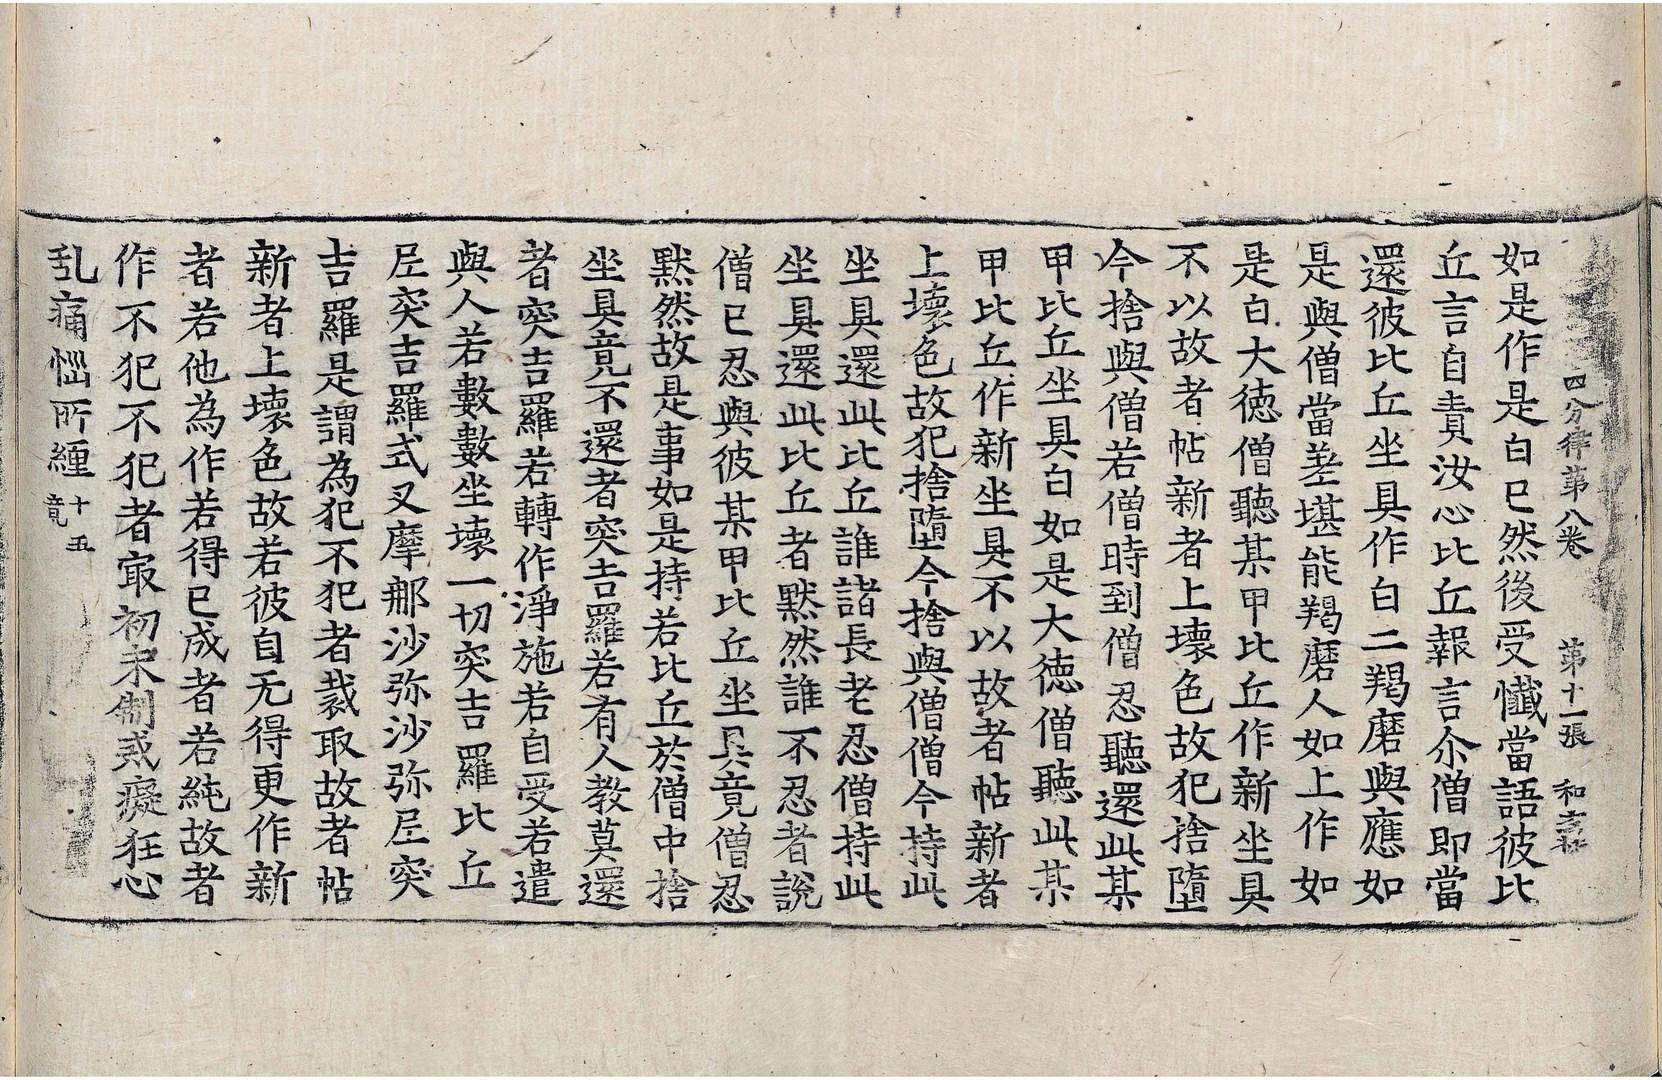 四分律第八卷　第十一張　和
如是作是白已然後受懺當語彼比
丘言自責汝心比丘報言尒僧即當
還彼比丘坐具作白二羯磨與應如
是與僧當差堪能羯磨人如上作如
是白大德僧聽某甲比丘作新坐具
不以故者帖新者上壞色故犯捨墮
今捨與僧若僧時到僧忍聽還此某
甲比丘坐具白如是大德僧聽此某
甲比丘作新坐具不以故者帖新者
上壞色故犯捨墮今捨與僧僧今持此
坐具還此比丘誰諸長老忍僧持此
坐具還此比丘者默然誰不忍者說
僧已忍與彼某甲比丘坐具竟僧忍
默然故是事如是持若比丘於僧中捨
坐具竟不還者突吉羅若有人教莫還
者突吉羅若轉作淨施若自受若遣
與人若數數坐壞一切突吉羅比丘
尼突吉羅式叉摩那沙弥沙弥尼突
吉羅是謂為犯不犯者裁取故者帖
新者上壞色故若彼自无得更作新
者若他為作若得已成者若純故者
作不犯不犯者㝡初未制戒癡狂心
乱痛惱所纏十五竟